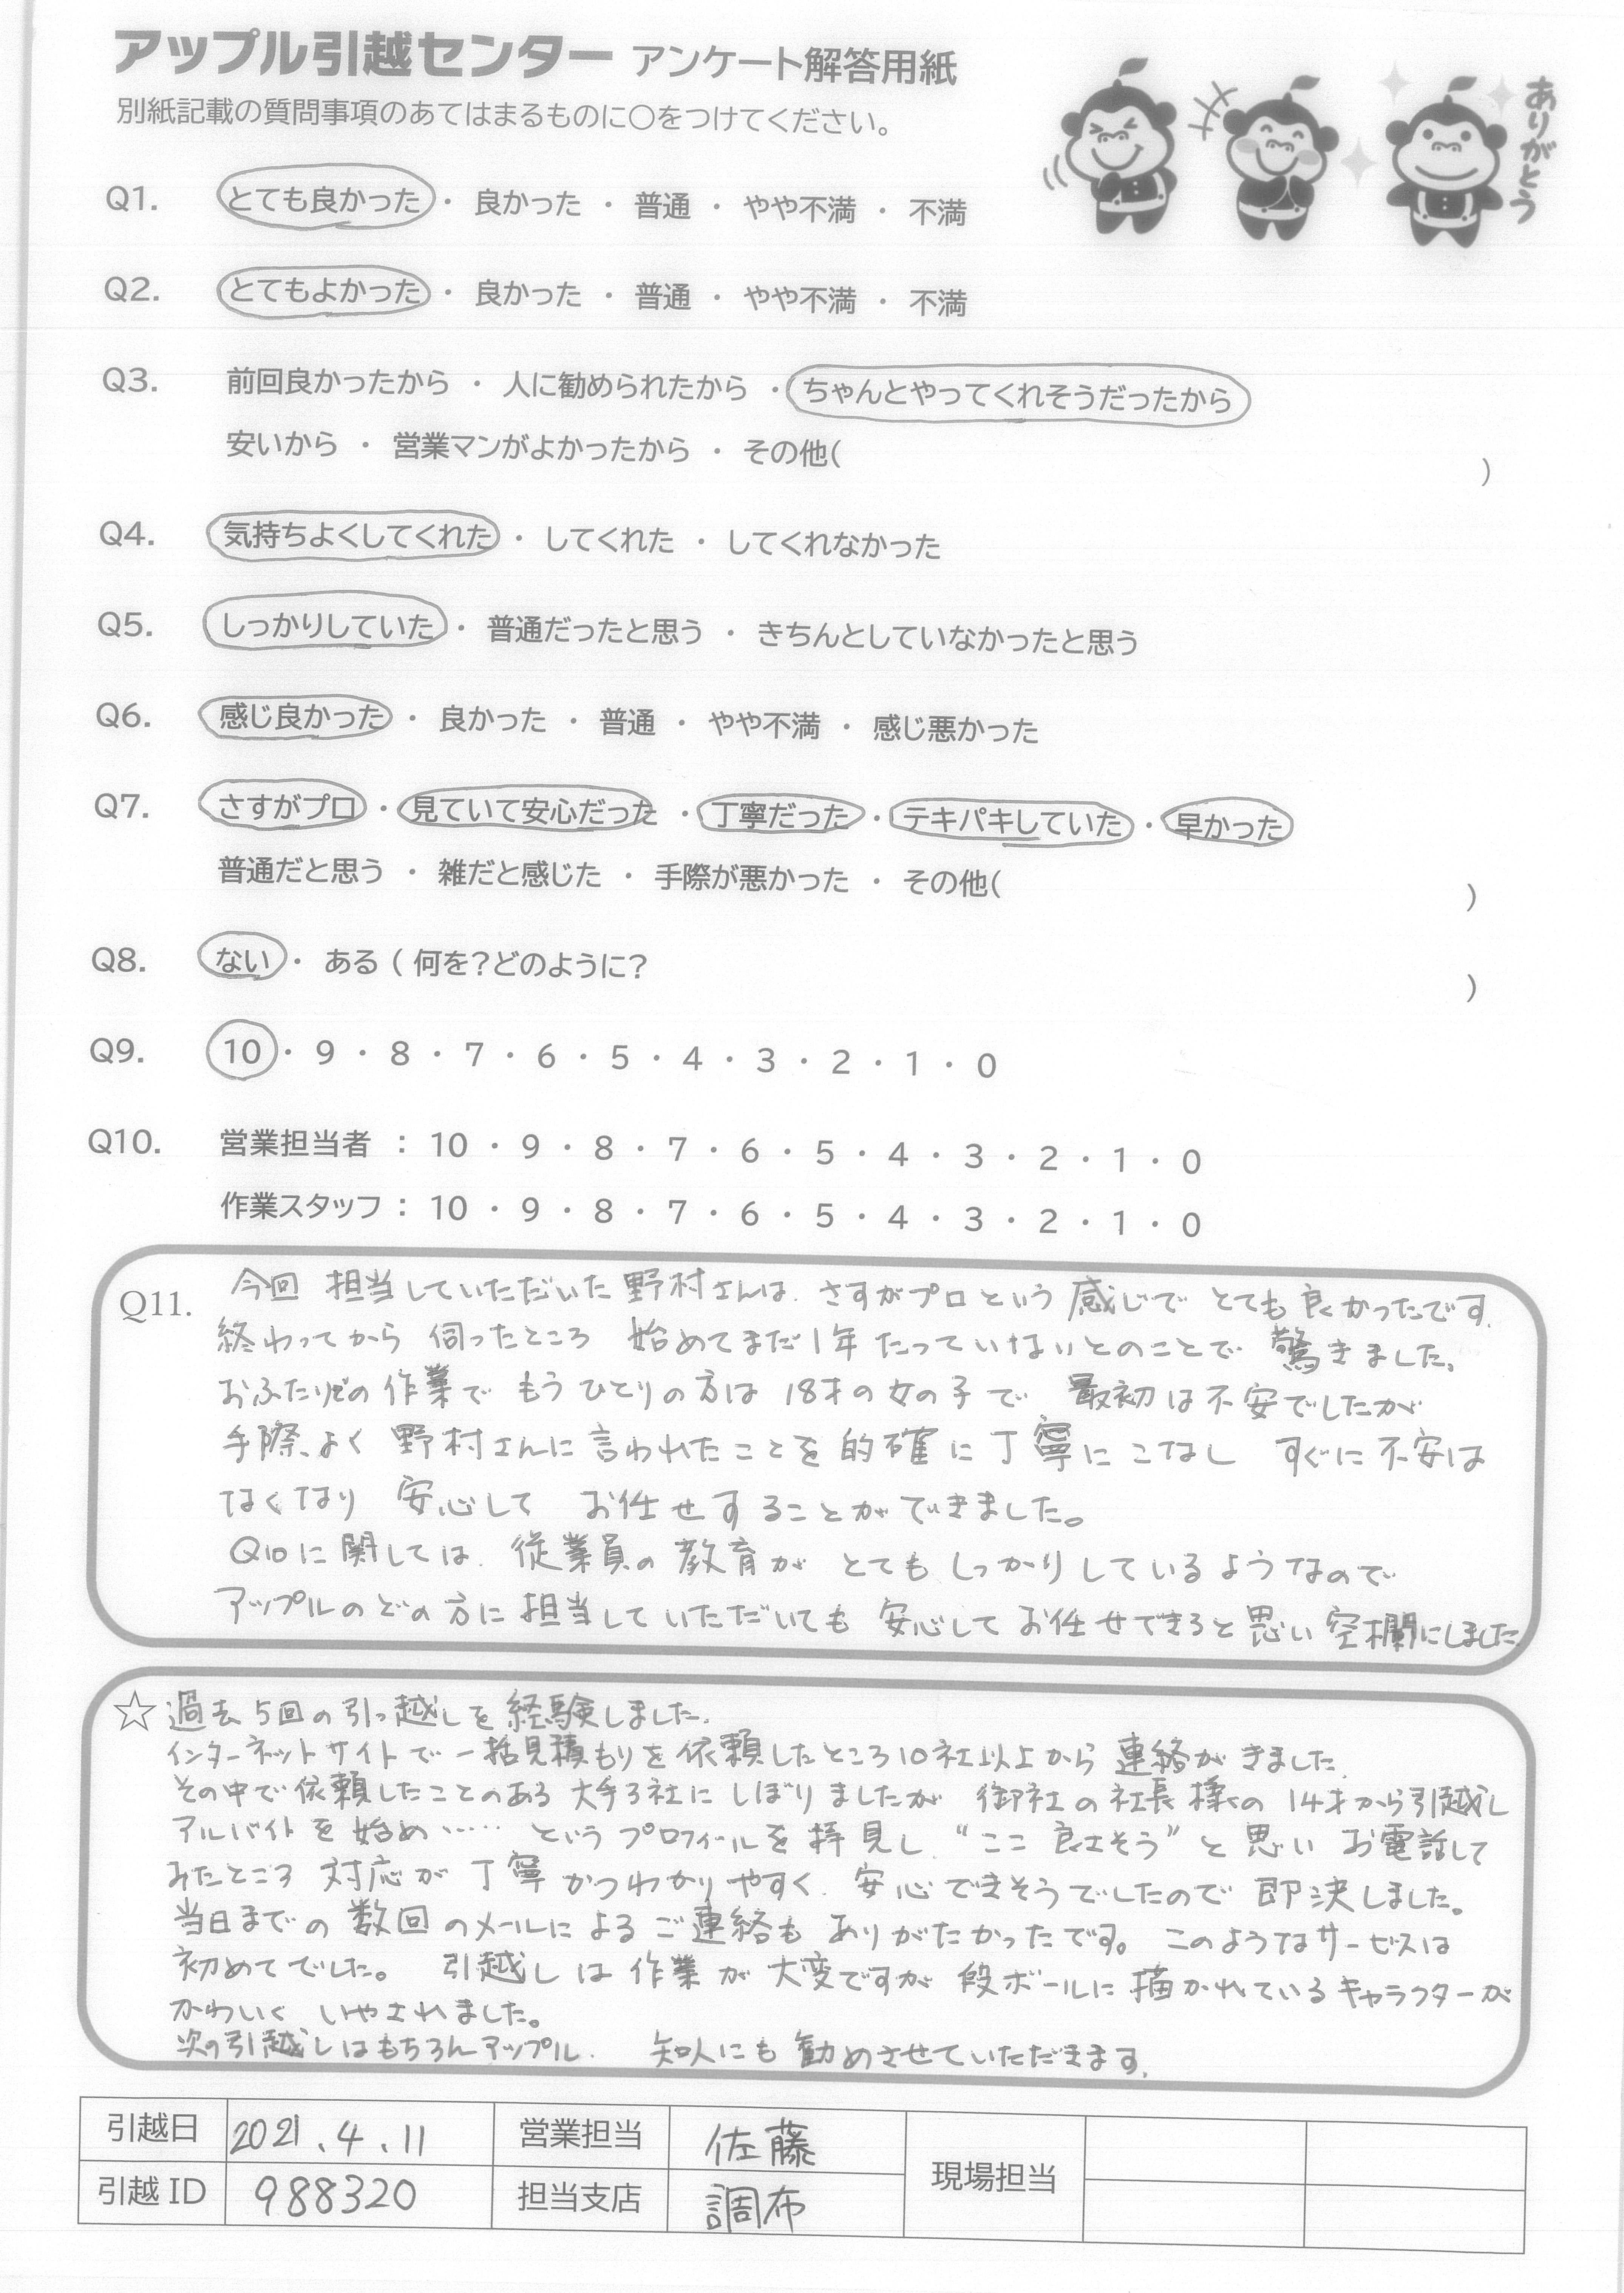 アップル引越センター アンケート解答用紙
別紙記載の質問事項のあてはまるものに〇をつけてください。
ありがとう
Q1. とても良かった ・ 良かった ・ 普通 ・ やや不満 ・ 不満
Q2. とてもよかった ・ 良かった ・ 普通 ・ やや不満 ・ 不満
Q3. 前回良かったから ・ 人に勧められたから ・ ちゃんとやってくれそうだったから
安いから ・ 営業マンがよかったから ・ その他( )
Q4. 気持ちよくしてくれた ・ してくれた ・ してくれなかった
Q5. しっかりしていた ・ 普通だったと思う ・ きちんとしていなかったと思う
Q6. 感じ良かった ・ 良かった ・ 普通 ・ やや不満 ・ 感じ悪かった
Q7. さすがプロ ・ 見ていて安心だった ・ 丁寧だった ・ テキパキしていた ・ 早かった
普通だと思う ・ 雑だと感じた ・ 手際が悪かった ・ その他( )
Q8. ない ・ ある ( 何を?どのように? )
Q9. 10 ・ 9 ・ 8 ・ 7 ・ 6 ・ 5 ・ 4 ・ 3 ・ 2 ・ 1 ・ 0
Q10. 営業担当者 : 10 ・ 9 ・ 8 ・ 7 ・ 6 ・ 5 ・ 4 ・ 3 ・ 2 ・ 1 ・ 0
作業スタッフ : 10 ・ 9 ・ 8 ・ 7 ・ 6 ・ 5 ・ 4 ・ 3 ・ 2 ・ 1 ・ 0
Q11. 今回 担当していただいた野村さんは、さすがプロという感じで とても良かったです。
終わってから 伺ったところ 始めてまだ1年たっていないとのことで 驚きました。
おふたりでの作業で もうひとりの方は 18才の女の子で 最初は不安でしたが
手際よく 野村さんに言われたことを的確に丁寧にこなし すぐに不安は
なくなり 安心して お任せすることができました。
Q10に関しては、従業員の教育が とてもしっかりしているようなので
アップルのどの方に担当していただいても 安心してお任せできると思い 空欄にしました。
☆過去5回の引っ越しを経験しました。
インターネットサイトで一括見積もりを依頼したところ10社以上から 連絡がきました。
その中で依頼したことのある大手3社にしぼりましたが 御社の社長様の14才から引越し
アルバイトを始め‥‥‥というプロフィールを拝見し、“ここ良さそう”と思い お電話して
みたところ 対応が丁寧かつわかりやすく、安心できそうでしたので即決しました。
当日までの数回のメールによるご連絡も ありがたかったです。このようなサービスは
初めてでした。 引越しは作業が大変ですが 段ボールに描かれているキャラクターが
かわいく いやされました。
次の引越しはもちろんアップル. 知人にも勧めさせていただきます。
引越日 2021.4.11 営業担当 佐藤 現場担当
引越ID 988320 担当支店 調布